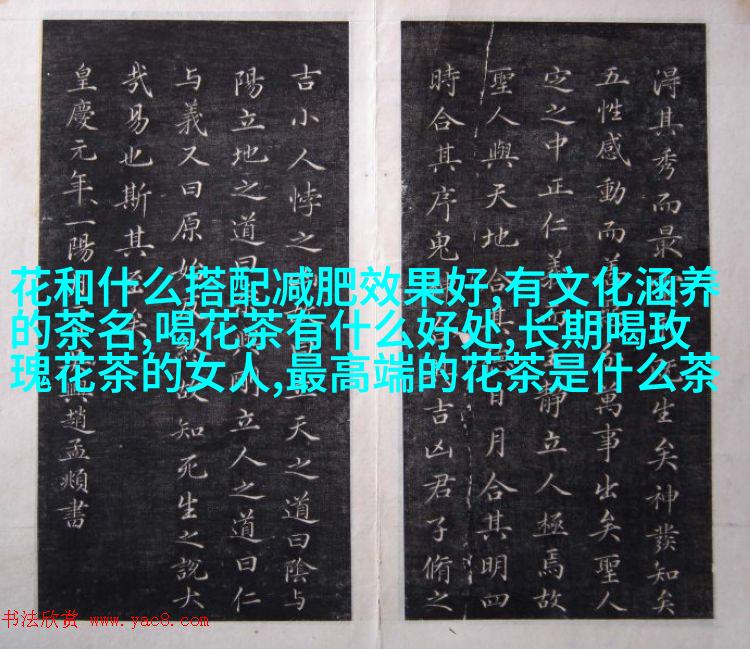 淂其秀而最 生矣神發知矣
五性感動而善 萬事出矣聖人
定之中正仁義 靜立人極焉故
聖人與天地合其 日月合其明四
時合其序鬼 吉凶君子脩之
吉小人悖之 天之道曰陰与
陽立地之道曰 剛立人之道曰仁
与義又曰原始 故知死生之說大
哉易也斯其至矣
皇慶元年一陽月 趙孟頫書
花和什么搭配减肥效果好,有文化涵养
的茶名,喝花茶有什么好处,长期喝玫
瑰花茶的女人,最高端的花茶是什么茶
书法欣赏 www.yac8.com